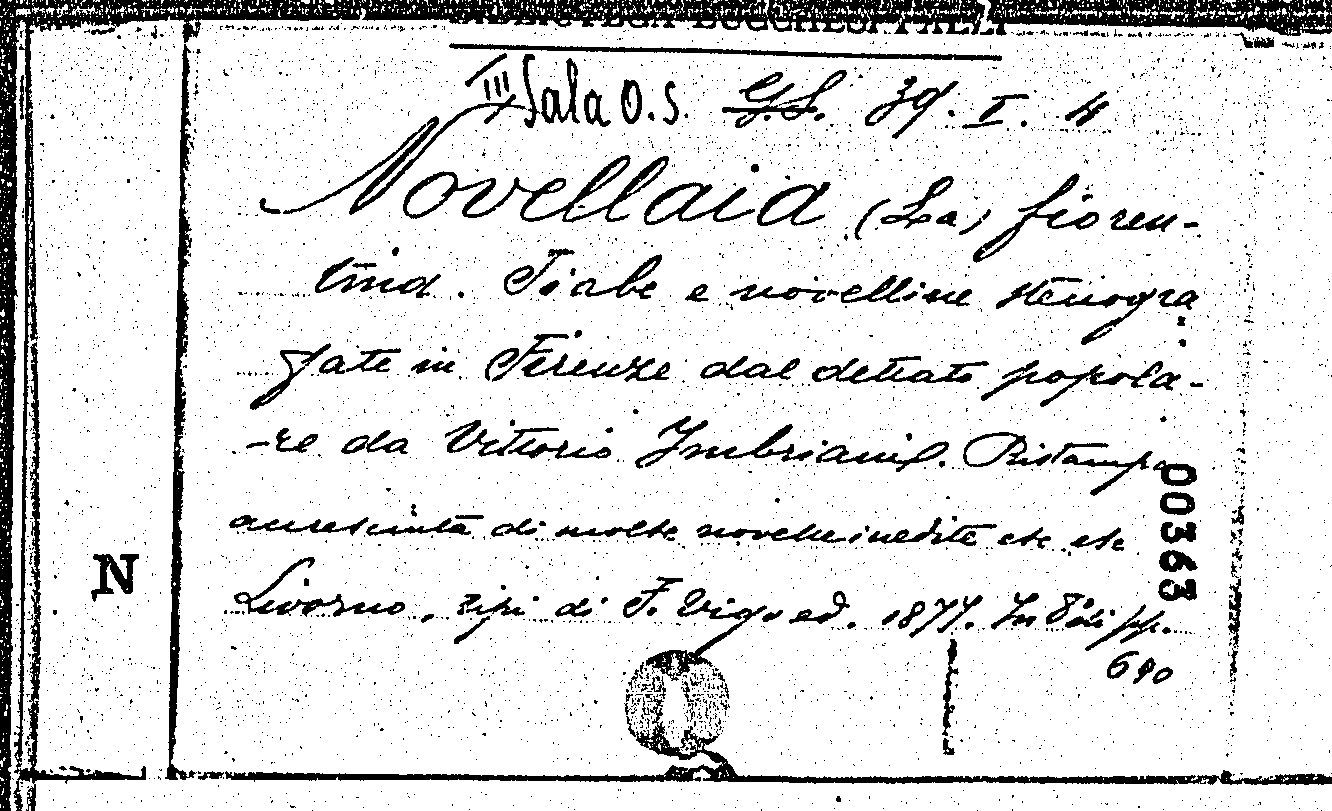 III Sala O.S. G.S. 39. I. 4
Novellaia (La) fioren-
tina. Fiabe e novelline stenogra
fate in Firenze dal dettato popola-
-re da Vittorio Imbriani. Ristampa
accresciuta di molte novelle inedite etc etc
Livorno, tipi di F. Vigo ed. 1877. In 8º di pp.
690
00363
N